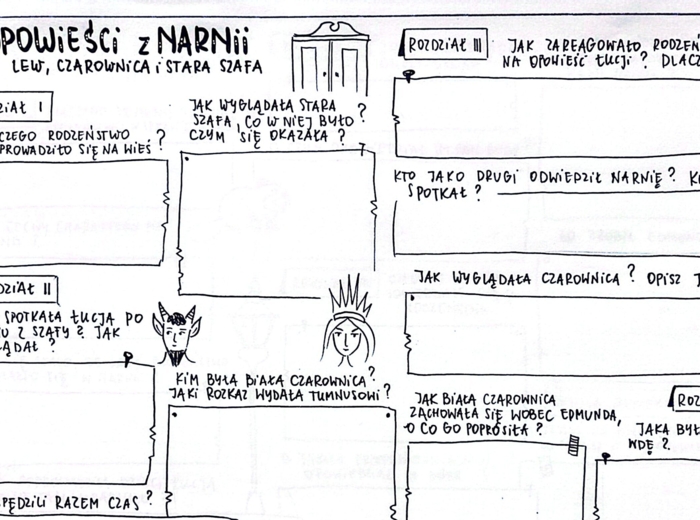 OPOWIEŚCI Z NARNII
LEW, CZAROWNICA I STARA SZAFA
ROZDZIAŁ III
JAK ZAREAGOWAŁO RODZEŃ
NA OPOWIEŚĆ ŁUCJI? DLACZ
DZIAŁ I
CZEGO RODZEŃSTWO
PROWADZIŁO SIĘ NA WIEŚ?
JAK WYGLĄDAŁA STARA
SZAFA, CO W NIEJ BYŁO?
CZYM SIĘ OKAZAŁA?
KTO JAKO DRUGI ODWIEDZIŁ NARNIĘ? K
SPOTKAŁ?
JAK WYGLĄDAŁA CZAROWNICA? OPISZ
DZIAŁ II
SPOTKAŁA ŁUCJA PO
U Z SZAFY? JAK
ĄDAŁ?
KIM BYŁA BIAŁA CZAROWNICA?
JAKI ROZKAZ WYDAŁA TUMNUSOWI?
JAK BIAŁA CZAROWNICA
ZACHOWAŁA SIĘ WOBEC EDMUNDA,
O CO GO POPROSIŁA?
ROZ
JAKA BYŁ
WDĘ?
PĘDZILI RAZEM CZAS?